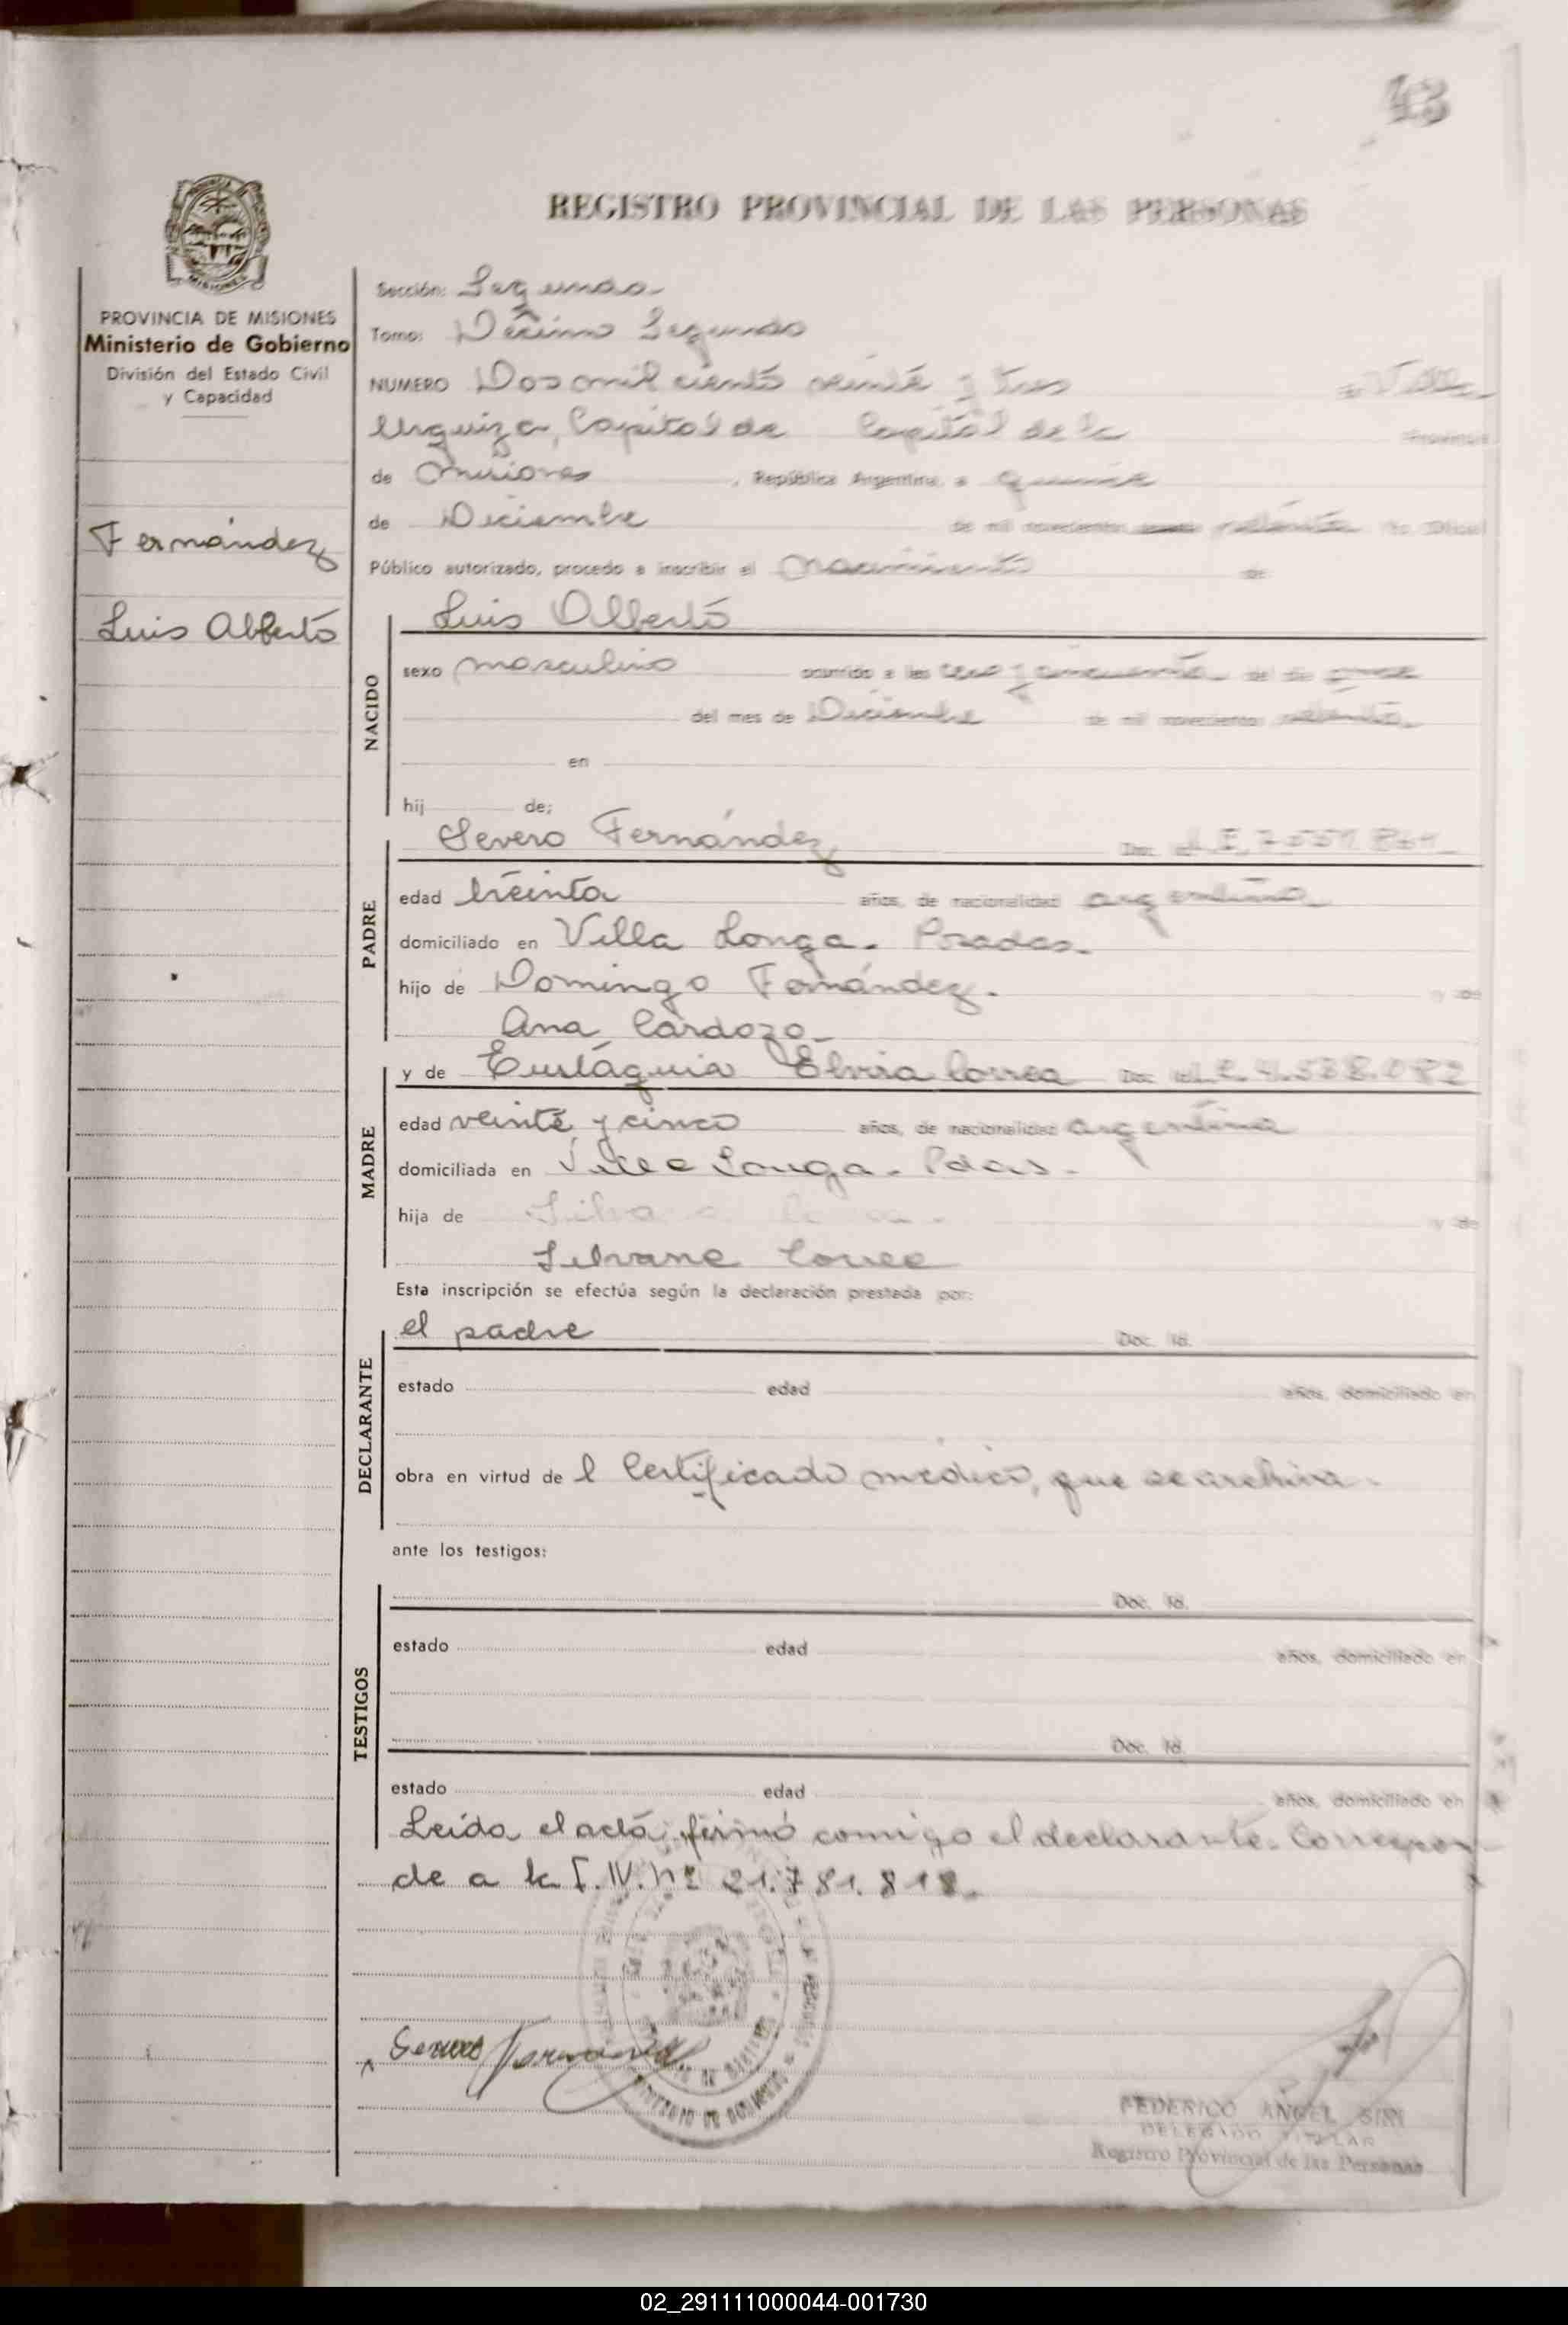 43
REGISTRO PROVINCIAL DE LAS PERSONAS
PROVINCIA DE MISIONES
Ministerio de Gobierno
División del Estado Civil
y Capacidad
Fernández
Luis Alberto
Sección: Segunda
Tomo: Décimo Segundo
NUMERO Dos mil ciento veinte y tres en Villa
Urquiza, Capital de Capital de la Provincia
de Misiones, República Argentina, a quince
de Diciembre de mil novecientos setenta Yo Oficial
Público autorizado, procedo a inscribir el Nacimiento de
NACIDO
Luis Alberto
sexo masculino ocurrido a las cero y cincuenta del día once
del mes de Diciembre de mil novecientos setenta
en
hij de:
PADRE
Severo Fernández Doc. Id. L.E. 7.551.
edad treinta años, de nacionalidad argentina
domiciliado en Villa Longa. Posadas.
hijo de Domingo Fernández. y de
Ana Cardozo
MADRE
y de Eustaquia Elvira Correa Doc. Id. L.C. 4.538.082
edad veinte y cinco años, de nacionalidad argentina
domiciliada en Villa Longa. Pdas.
hija de y de
Silvana Correa
Esta inscripción se efectúa según la declaración prestada por:
DECLARANTE
el padre Doc. Id.
estado edad años, domiciliado en
obra en virtud de l Certificado médico, que se archiva.
ante los testigos:
TESTIGOS
Doc. Id.
estado edad años, domiciliado en
Doc. Id.
estado edad años, domiciliado en
Leída el acta, firmó comigo el declarante. Correspon-
de a la Nº 21.781.818.
Severo Fernandez
FEDERICO ANGEL SIRI
DELEGADO TITULAR
Registro Provincial de las Personas
02_291111000044-001730